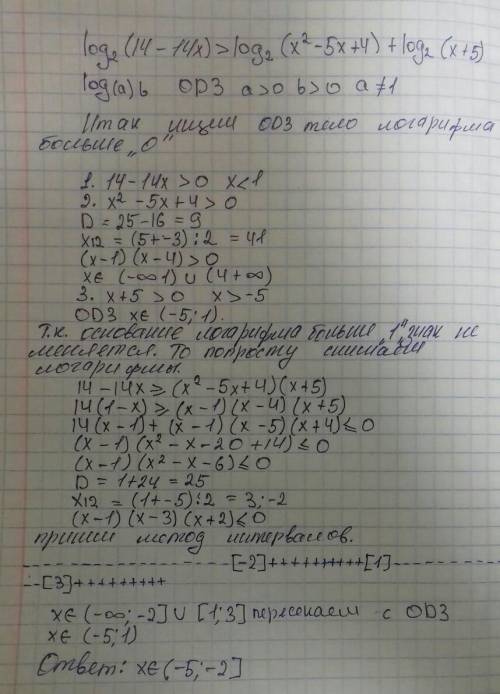 log₂(14-14x)>log₂(x²-5x+4)+log₂(x+5)
log(a)b ОДЗ a>0 b>0 a≠1
Итак ищем ОДЗ тело логарифма
больше „0"
1. 14-14x>0 x<1
2. x²-5x+4>0
D=25-16=9
x12=(5+-3):2=41
(x-1)(x-4)>0
x∈(-∞1)∪(4+∞)
3. x+5>0 x>-5
ОДЗ x∈(-5;1).
Т.к. основание логарифма больше „1" знак не
меняется. То попросту снимаем
логарифмы.
14-14x≥(x²-5x+4)(x+5)
14(1-x)≥(x-1)(x-4)(x+5)
14(x-1)+(x-1)(x-5)(x+4)≤0
(x-1)(x²-x-20+14)≤0
(x-1)(x²-x-6)≤0
D=1+24=25
x12=(1+-5):2=3;-2
(x-1)(x-3)(x+2)≤0
метод интервалов.
--------------------[-2]++++++++++[1]----
--[3]+++++++++
x∈(-∞;-2]∪[1;3] пересекаем с ОДЗ
x∈(-5;1)
Ответ: x∈(-5;-2]